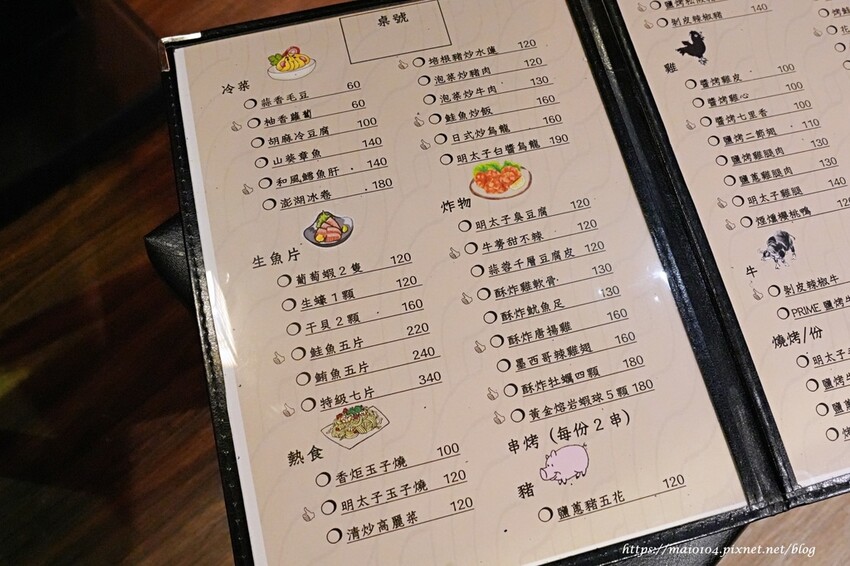 桌號
冷菜
蒜香毛豆 60
柚香蘿蔔 60
胡麻冷豆腐 100
山葵章魚 140
和風鱈魚肝 140
澎湖冰卷 180
生魚片
葡萄蝦2隻 120
生蠔1顆 120
干貝2顆 160
鮭魚五片 220
鮪魚五片 240
特級七片 340
熱食
香炬玉子燒 100
明太子玉子燒 120
清炒高麗菜 120
培根豬炒水蓮 120
泡菜炒豬肉 120
泡菜炒牛肉 130
鮭魚炒飯 160
日式炒烏龍 160
明太子白醬烏龍 190
炸物
明太子臭豆腐 120
牛蒡甜不辣 120
蒜蓉千層豆腐皮 120
酥炸雞軟骨 130
酥炸魷魚足 130
酥炸唐揚雞 160
墨西哥辣雞翅 160
酥炸牡蠣四顆 180
黃金熔岩蝦球5顆 180
串烤(每份2串)
豬
鹽蔥豬五花 120
剝皮辣椒豬 140
雞
醬烤雞皮 100
醬烤雞心 100
醬烤七里香 100
鹽烤二節翅 110
鹽烤雞腿肉 130
鹽蔥雞腿肉 130
明太子雞腿 140
煙燻櫻桃鴨
牛
剝皮辣椒牛
PRIME 鹽烤牛
燒烤/份
明太子
鹽烤
鹽蔥
https://maio104.pixnet.net/blog